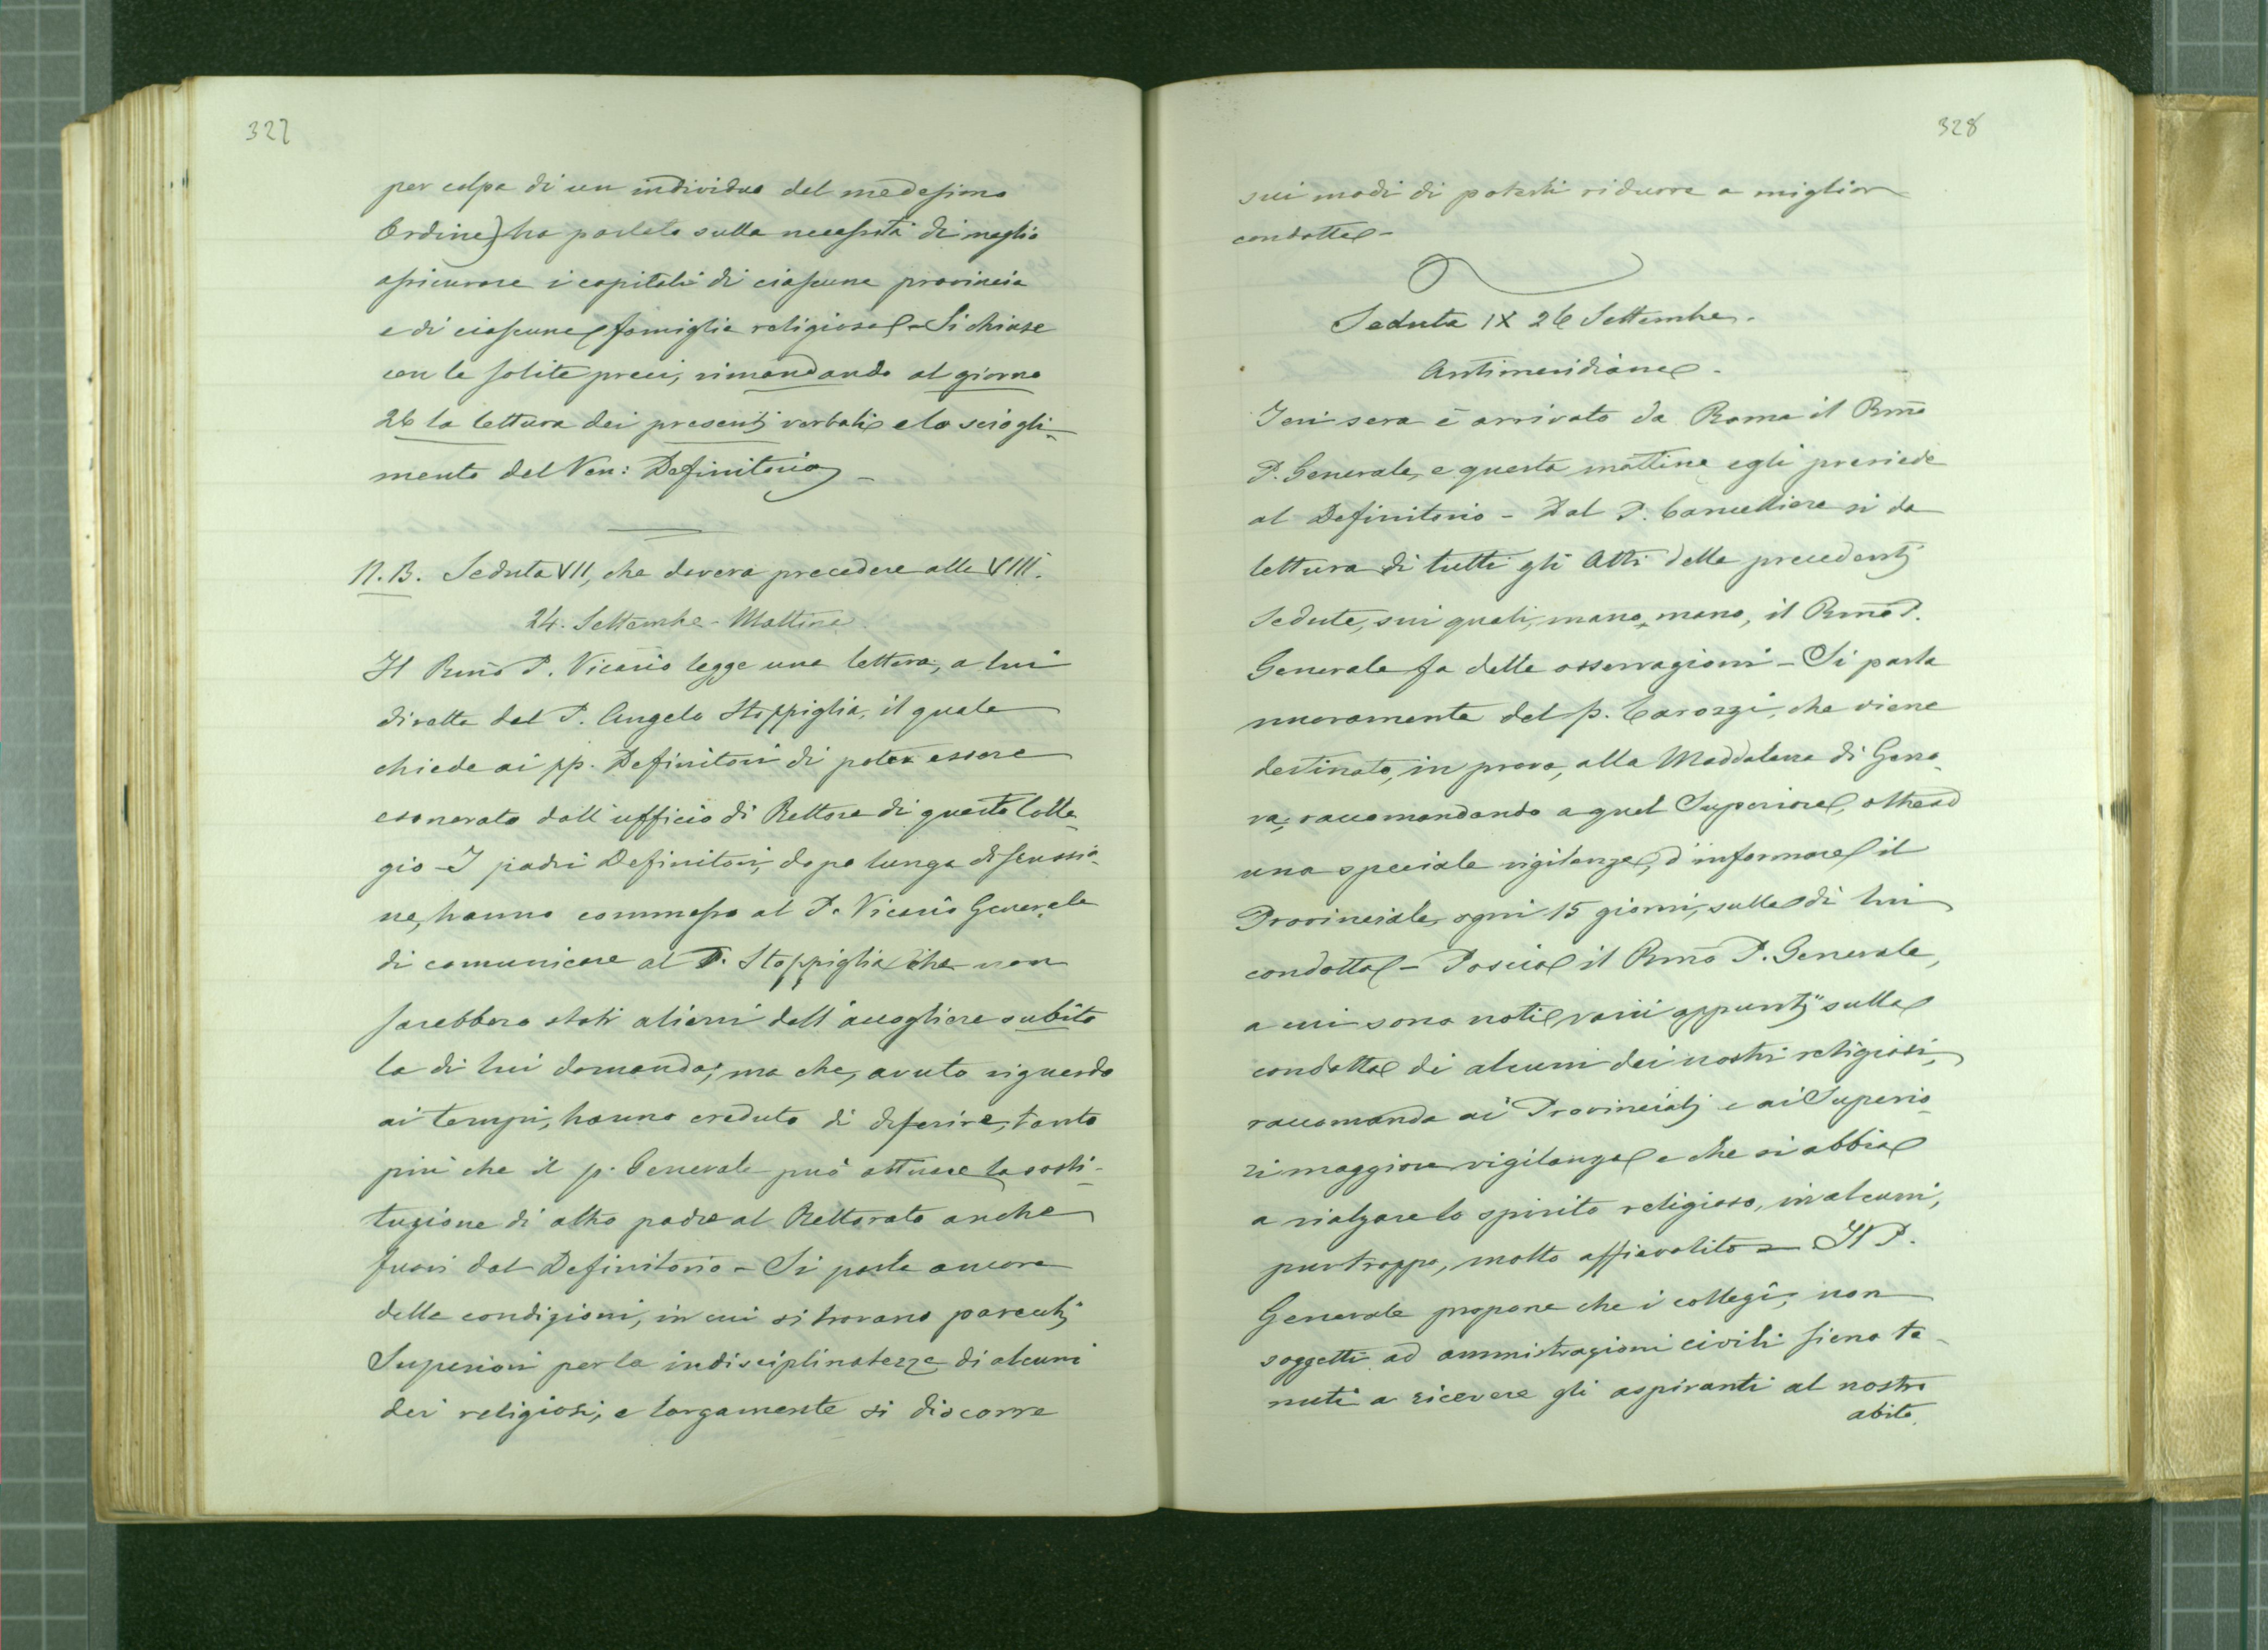 327
per colpa di un individuo del medesimo
Ordine) ha parlato sulla necessità di meglio
assicurare i capitali di ciascuna provincia
e di ciascuna famiglia religiosa - Si chiuse
con le solite preci, rimandando al giorno
26 la lettura dei presenti verbali e lo sciogli-
mento del Ven: Definitorio -
N.B. Seduta VII, che doveva precedere alla VIII.
24. Settembre - Mattina.
Il Rmo P. Vicario legge una lettera, a lui
diretta dal P. Angelo Stoppiglia, il quale
chiede ai pp. Definitori di poter essere
esonerato dall'ufficio di Rettore di questo Colle-
gio - I padri Definitori, dopo lunga discussio-
ne, hanno commesso al P. Vicario Generale
di comunicare al P. Stoppiglia che non
sarebbero stati alieni dall'accogliere subito
la di lui domanda; ma che, avuto riguardo
ai tempi, hanno creduto di differire, tanto
più che il p. Generale può attuare la sosti-
tuzione di altro padre al Rettorato anche
fuori dal Definitorio - Si parla ancora
delle condizioni, in cui si trovano parecchi
Superiori per la indisciplinatezza di alcuni
dei religiosi, e largamente si discorre
328
sui modi di poterli ridurre a miglior
condotta -
Seduta IX 26 Settembre.
Antimeridiana -
Ieri sera è arrivato da Roma il Rmo
P. Generale, e questa mattina egli presiede
al Definitorio - Dal P. Cancelliere si da
lettura di tutti gli Atti delle precedenti
Sedute, sui quali, mano, mano, il Rmo P.
Generale fa delle osservazioni - Si parla
nuovamente del p. Carozzi, che viene
destinato, in prova, alla Maddalena di Geno-
va, raccomandando a quel Superiore, oltre ad
una speciale vigilanza, d'informare il
Provinciale, ogni 15 giorni, sulla di lui
condotta - Poscia il Rmo P. Generale,
a cui sono noti varii appunti sulla
condotta di alcuni dei nostri religiosi,
raccomanda ai Provinciali e ai Superio-
ri maggiore vigilanza e che si abbia
a rialzare lo spirito religioso, in alcuni,
purtroppo, molto affievolito - Il P.
Generale propone che i collegi, non
soggetti ad amministrazioni civili sieno te-
nuti a ricevere gli aspiranti al nostro
abito.